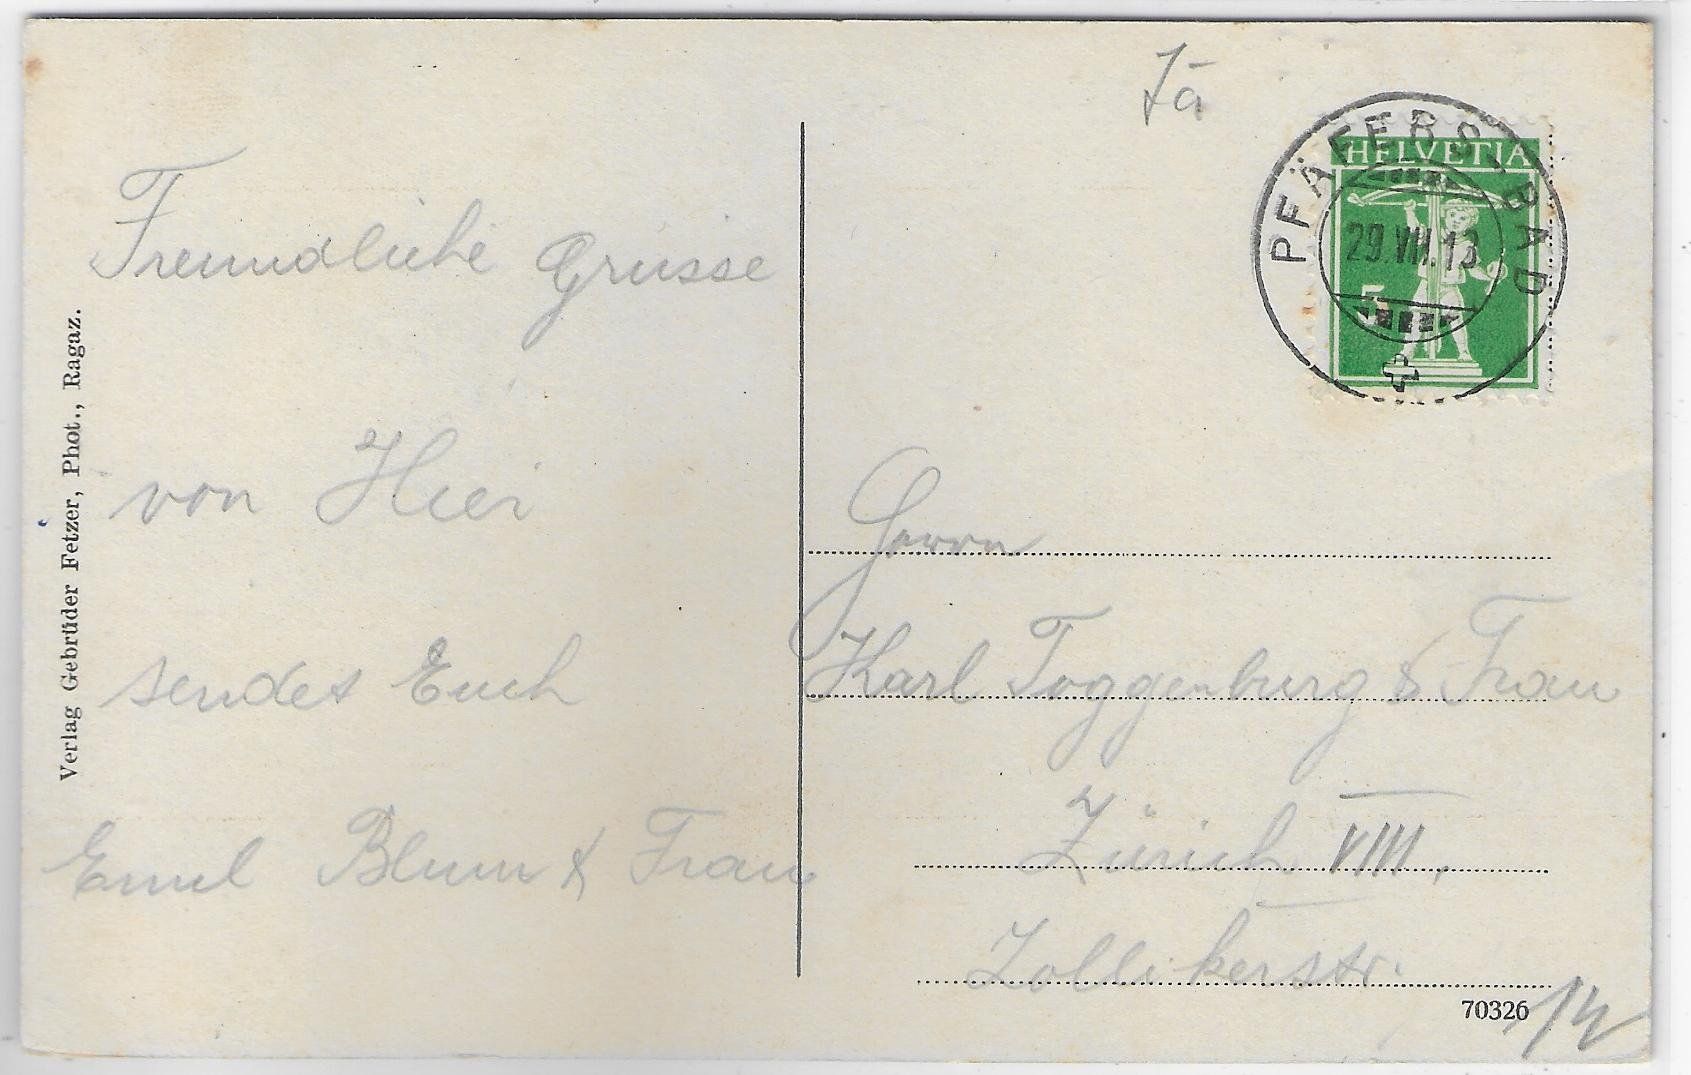 Verlag Gebrüder Fetzer, Phot., Ragaz.
Freundliche Grüsse
von Hier
sendet Euch
Emil Blum & Frau
PFÄFERS-BAD
29.VII.13
HELVETIA
5
Herrn
Karl Toggenburg & Frau
Zürich VIII,
Zollikerstr.
70326